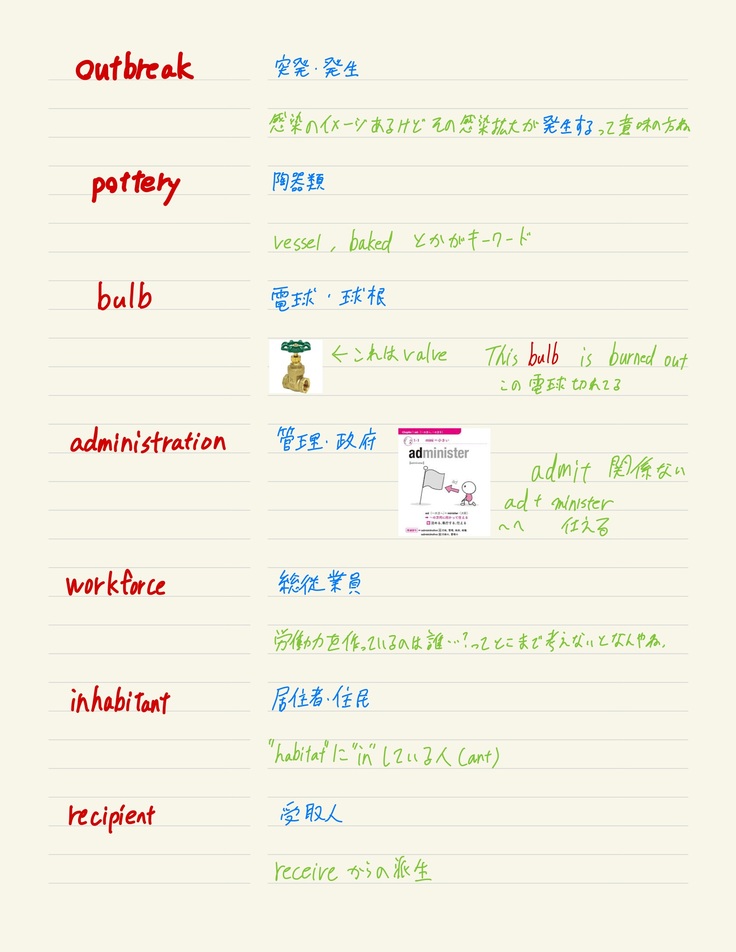 outbreak 突発・発生
感染のイメージあるけどその感染拡大が発生するって意味の方ね
pottery 陶器類
vessel, baked とかがキーワード
bulb 電球・球根
←これはvalve This bulb is burned out
この電球切れてる
administration 管理・政府
administer
admit 関係ない
ad + minister
~へ 仕える
workforce 総従業員
労働力を作っているのは誰…?ってとこまで考えないとなんやね.
inhabitant 居住者・住民
"habitat"に"in"している人(ant)
recipient 受取人
receiveからの派生